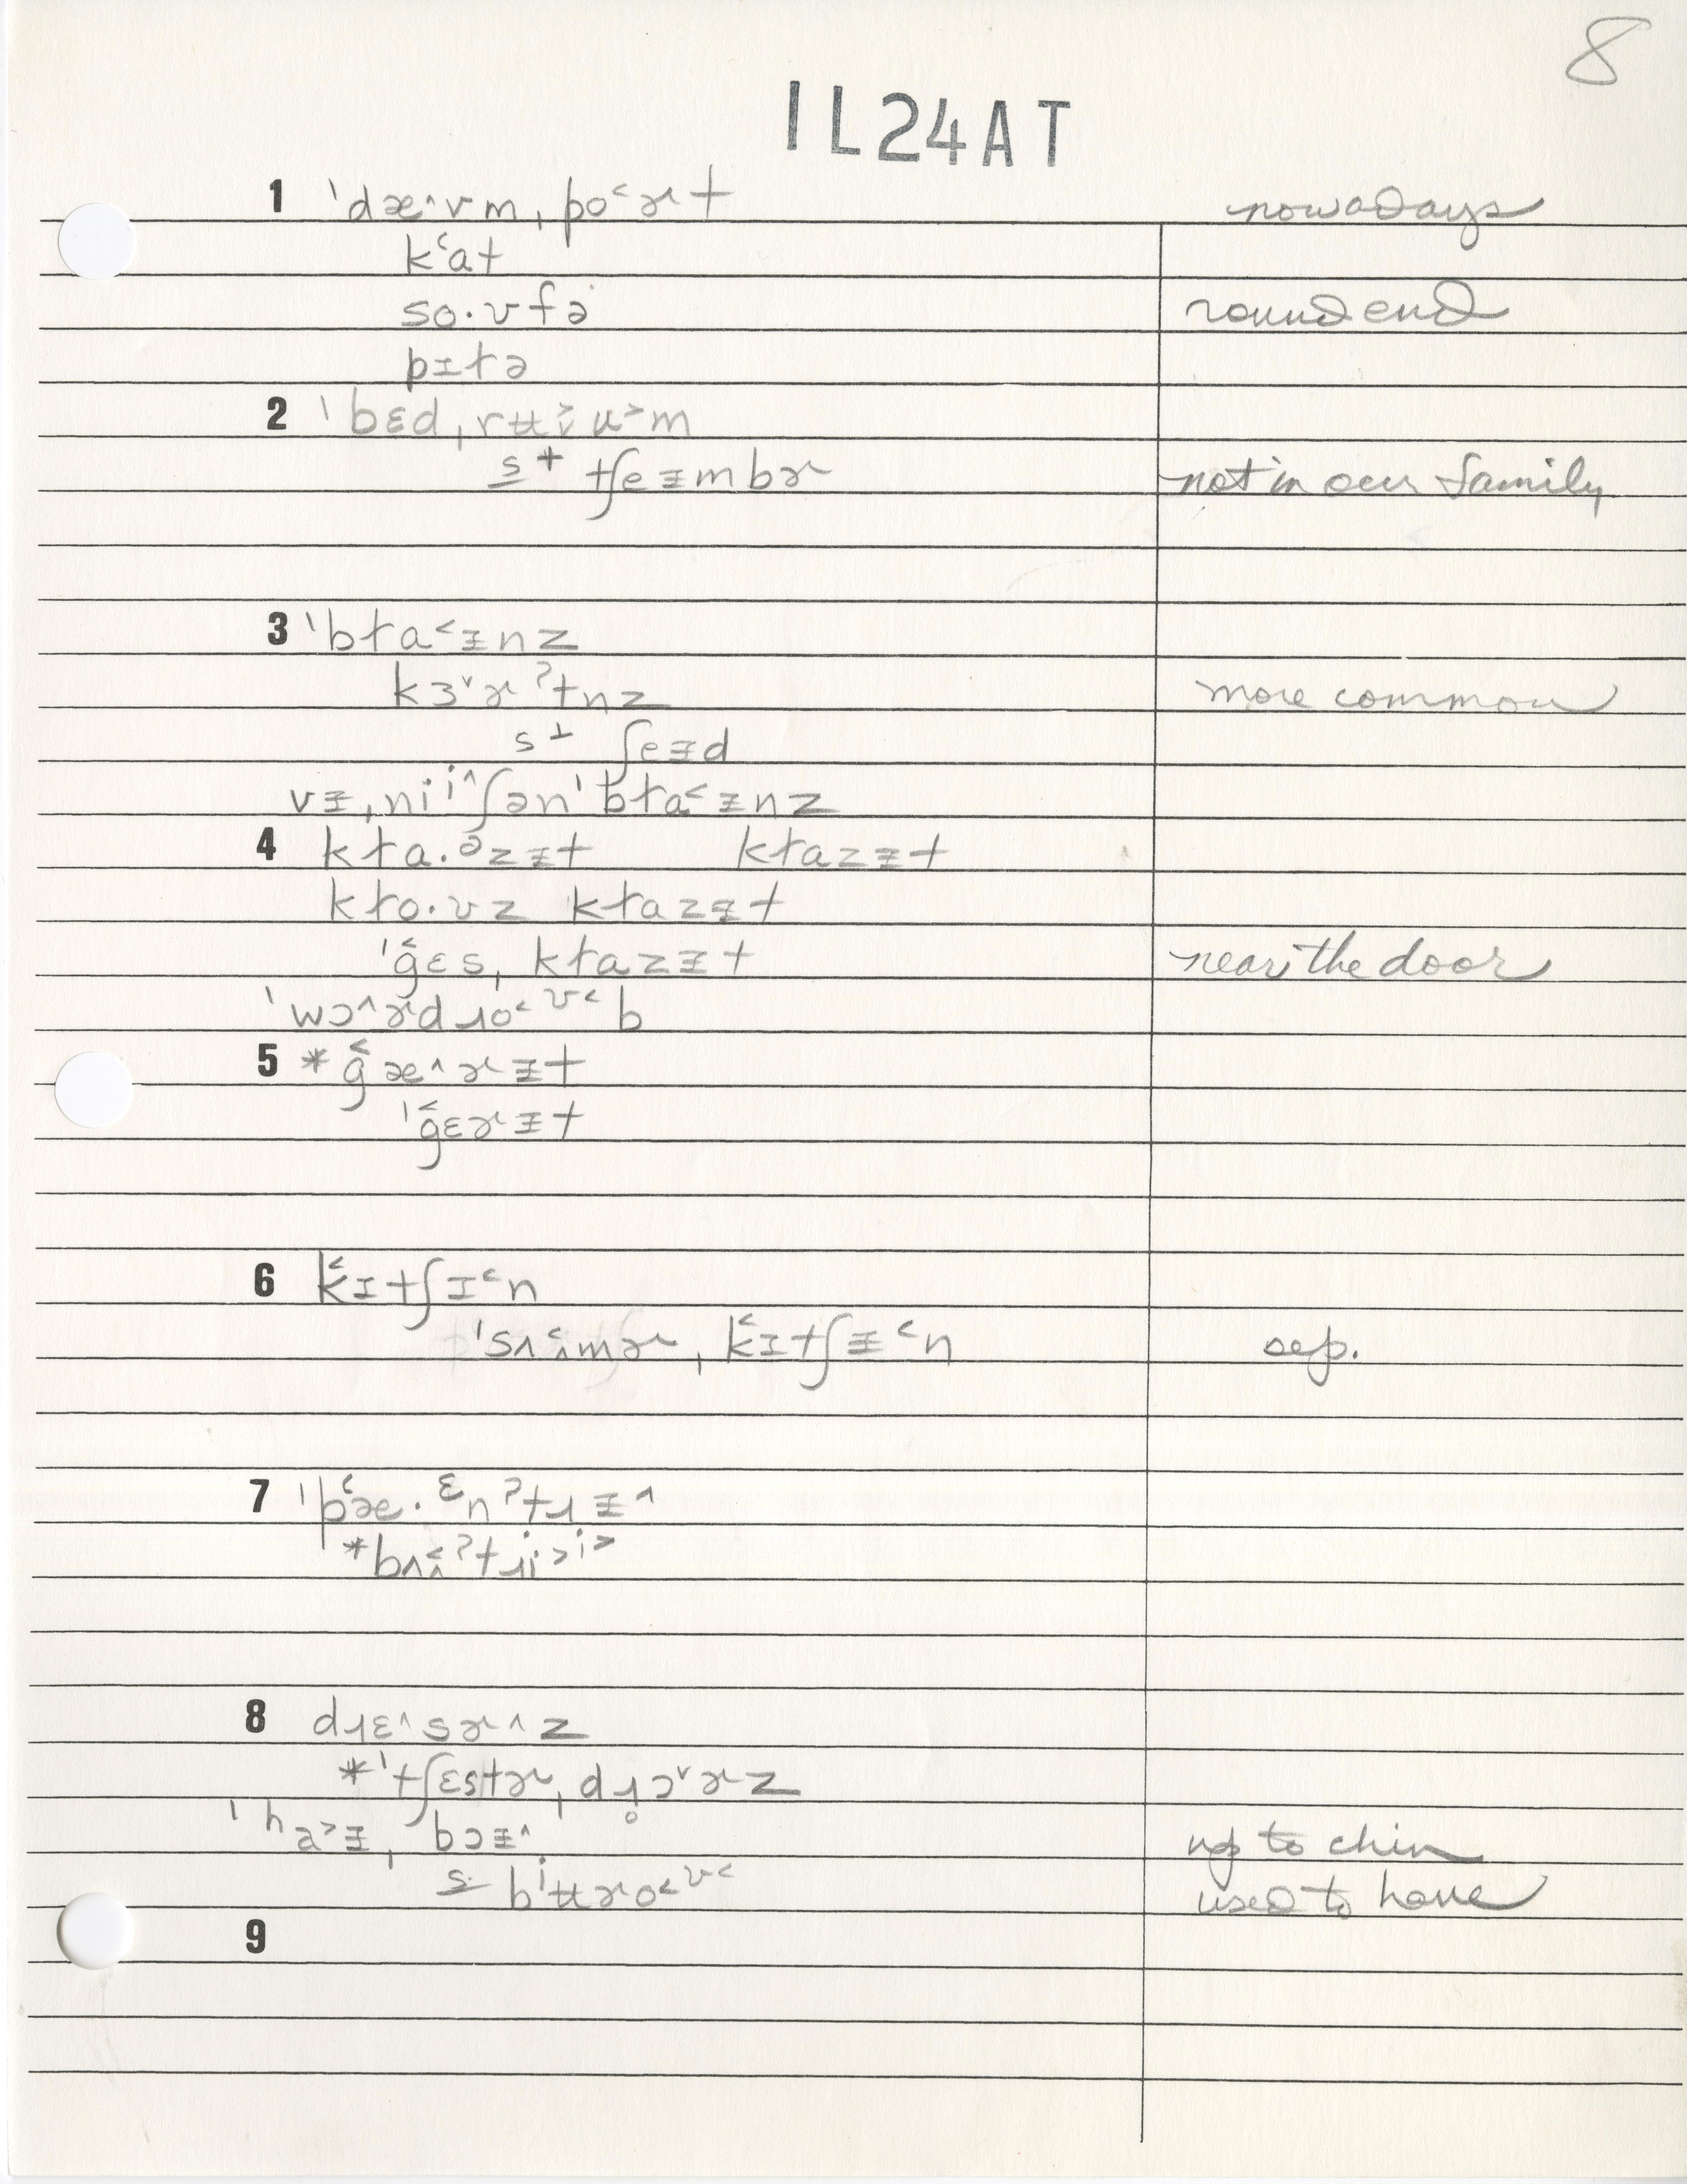 8
IL24AT
1 ˈdæ^ʊm ˌpo˂ɚt nowadays
k˂at
so·ʊfə round end
pɪɫə
2 ˈbɛd ˌrʉ˃ᵢu˃m
s+ tʃeᵻmbɚ not in our family
3 ˈbɫa˂ᵻnz
kɜ˅ɚʔtnz more common
s⊥ ʃeᵻd
vᵻˌniⁱ^ʃənˈbɫa˂ᵻnz
4 kɫa·ᵊzᵻt kɫazᵻt
kɫo·ʊz kɫazᵻt
ˈg˂ɛsˌ kɫazᵻt near the door
ˈwɔ^ɚdɹo˂ʊ˂b
5 *g˂æ^ɚᵻt
ˈg˂ɛɚᵻt
6 k˂ɪtʃɪ˂n
ˈsʌ˂^mɚ ˌk˂ɪtʃᵻ˂n sep.
7 ˈp˂æ·ᵋnʔtɹᵻ^
ˈ*bʌ˂^ʔtɹi˃ⁱ˃
8 dɹɛ^sɚ^z
*ˈtʃɛstɚ ˌdɹ̥ɔ˅ɚz
ˈha˃ᵻ ˌbɔᵻ^ up to chin
s- bⁱʉɚo˂ʊ˂ used to have
9